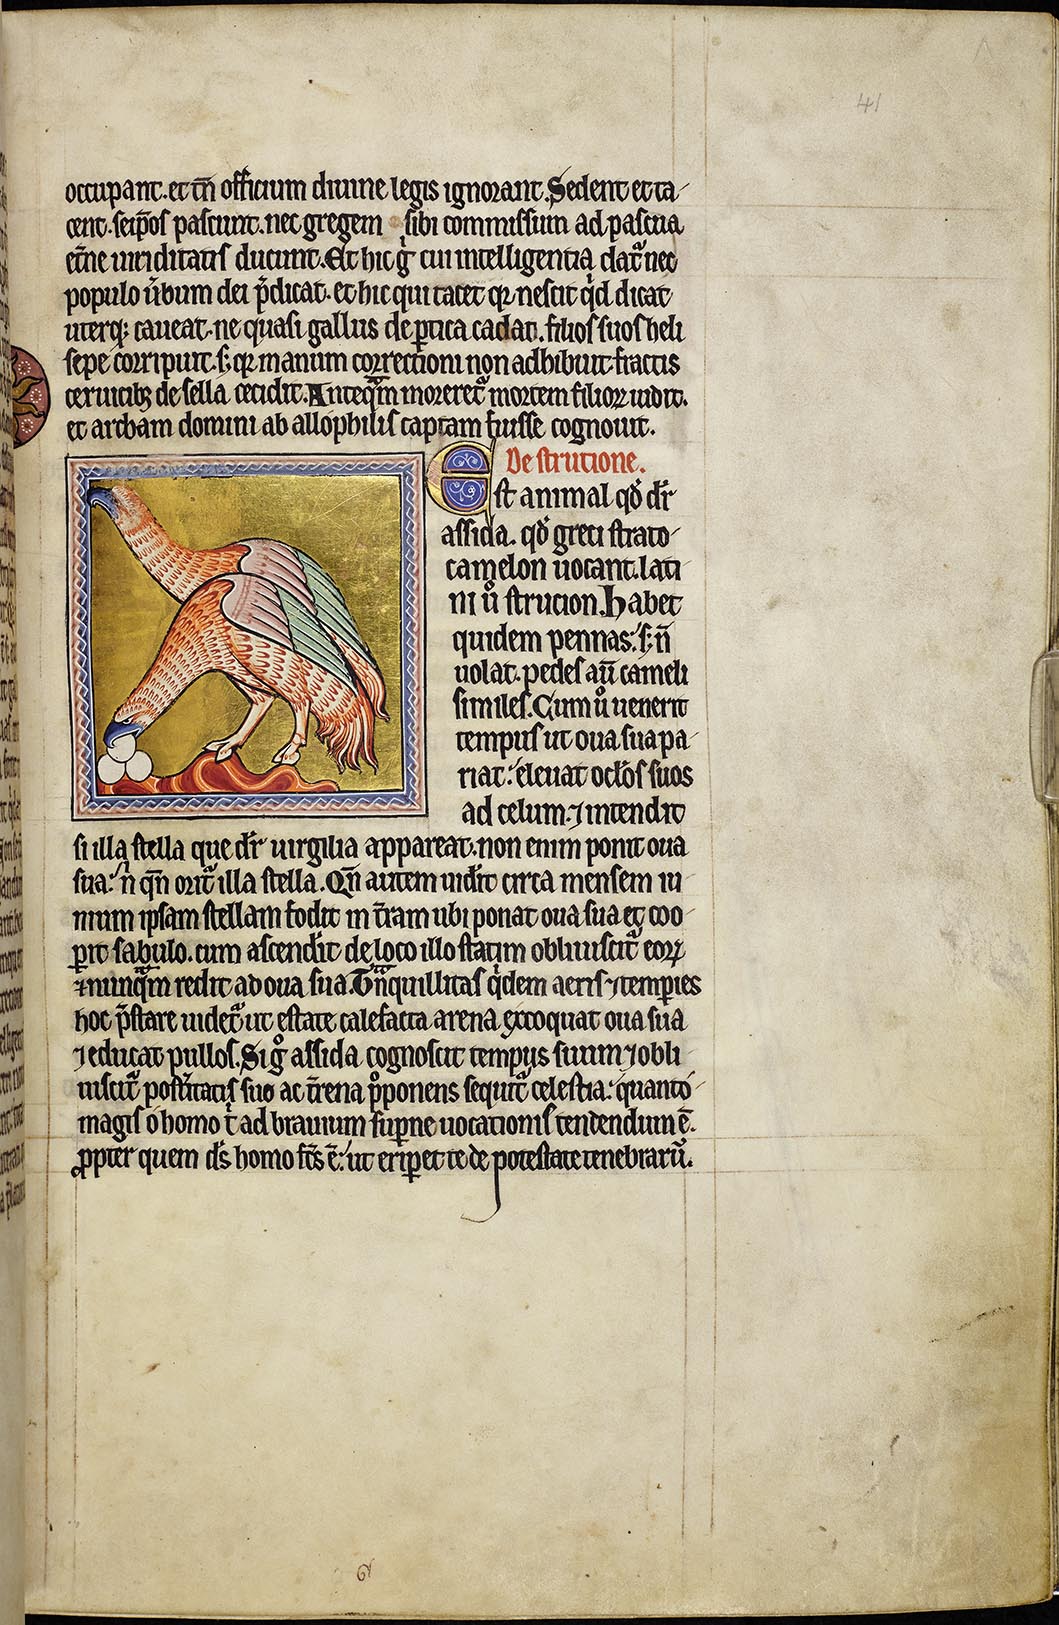 41
occupant. et tn̄ officium diuine legis ignorant. Sedent et ta-
cent. seip̄os pascunt. nec gregem sibi commissum ad pascua
et̄ne uiriditatis ducunt. Et hic g̊ cui intelligentia datᷣ nec
populo ūbum dei p̄dicat. et hic qui tacet qꝛ nescit qͥd dicat
uterqꝫ caueat. ne quasi gallus de ꝑtica cadat. filios suos heli
sepe corripuit. sꝫ qꝛ manum correctioni non adhibuit fractis
ceruicibꝫ de sella cecidit. Anteqᷓm moreretᷣ mortem filioꝝ uidit.
et archam domini ab allophilis captam fuisse cognouit.
De strucione.
Est animal qd̊ dr̄
assida. qd̊ greci strato-
camelon uocant. lati
ni ů strucion. Habet
quidem pennas: sꝫ n̄
uolat. pedes aū cameli
similes. Cum ů uenerit
tempus ut oua sua pa-
riat: eleuat oclos suos
ad celum. ⁊ intendit
si illa stella que dr̄ uirgilia appareat. non enim ponit oua
sua: n̄ qn̄ oritᷣ illa stella. Qn̄ autem uid̄it circa mensem iu-
nium ipsam stellam fodit in t̄ram ubi ponat oua sua et coo-
ꝑit sabulo. cum ascend̄it de loco illo statim obliuiscitᷣ eoꝝ
⁊ nunqᷓm redit ad oua sua. Tᷓnquillitas qͥdem aeris ⁊ temꝑies
hoc p̄stare uidetᷣ ut estate calefacta arena excoquat oua sua
⁊ educat pullos. Si g̊ assida cognoscit tempus suum ⁊ obli
uiscitᷣ post̄itatis suo ac t̄rena p̊ponens sequitᷣ celestia: quanto-
magis o homo tͥ ad brauium suꝑne uocationis tendendum ē.
ꝓpter quem ds̄ homo fc̄s ē: ut eriꝑet te de potestate tenebrarū.